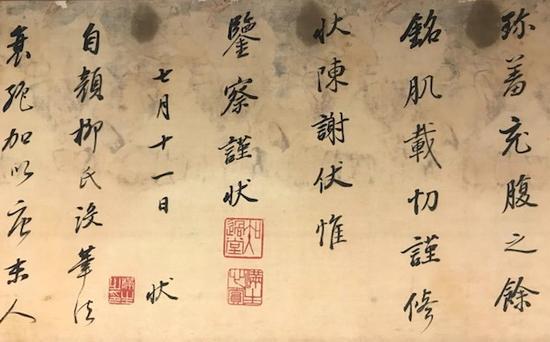 珍羞充腹之餘
銘肌載切謹脩
狀陳謝伏惟
鑒察謹狀
七月十一日
狀
自顏柳氏沒筆法
衰絕加以唐末人